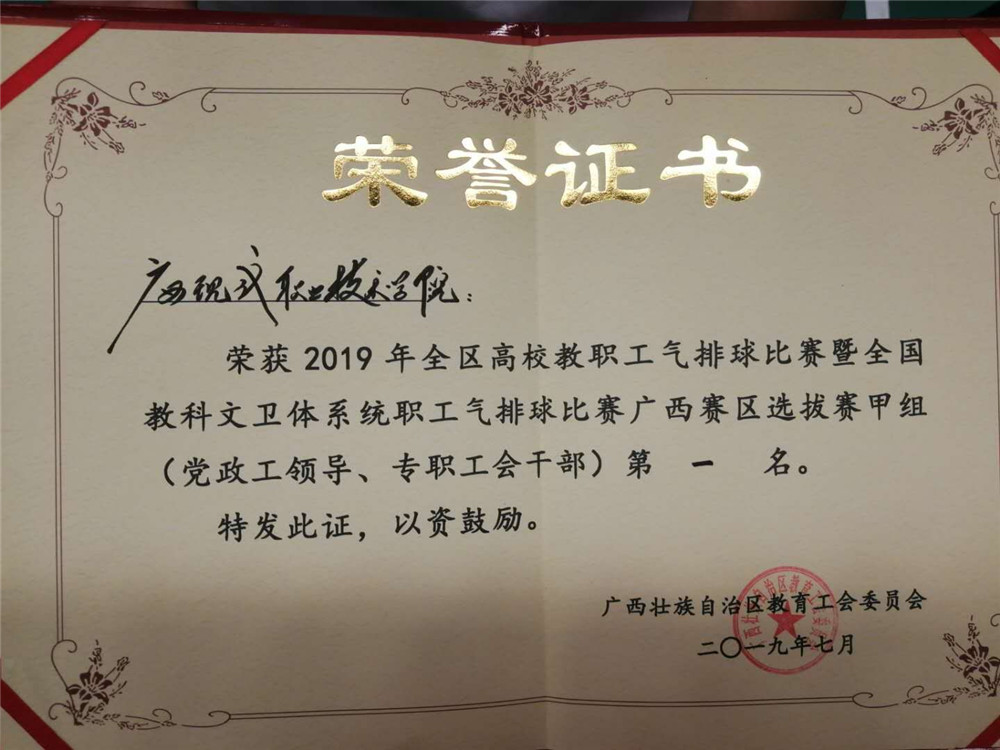 荣誉证书
广西现代职业技术学院：
荣获2019年全区高校教职工气排球比赛暨全国
教科文卫体系统职工气排球比赛广西赛区选拔赛甲组
（党政工领导、专职工会干部）第 一 名。
特发此证，以资鼓励。
广西壮族自治区教育工会委员会
二〇一九年七月